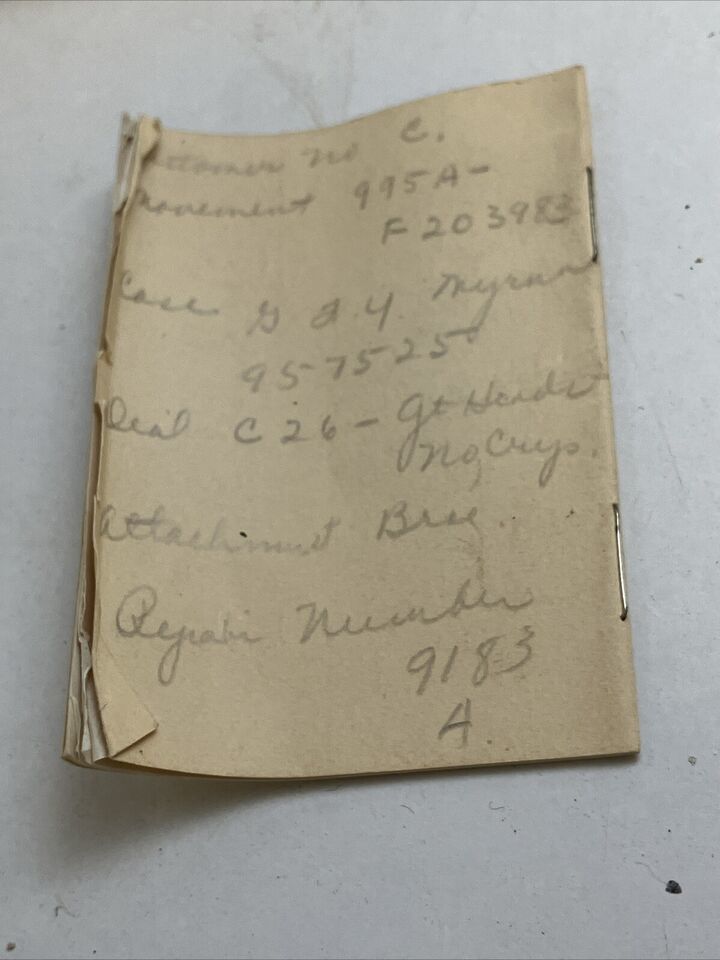 Customer No C.
Movement 995A-
F 203983
Case G 2.Y. Myron
957525
Dial C26 - Gt Hands
No Crys.
Attachment Brac
Repair Number
9183
A.